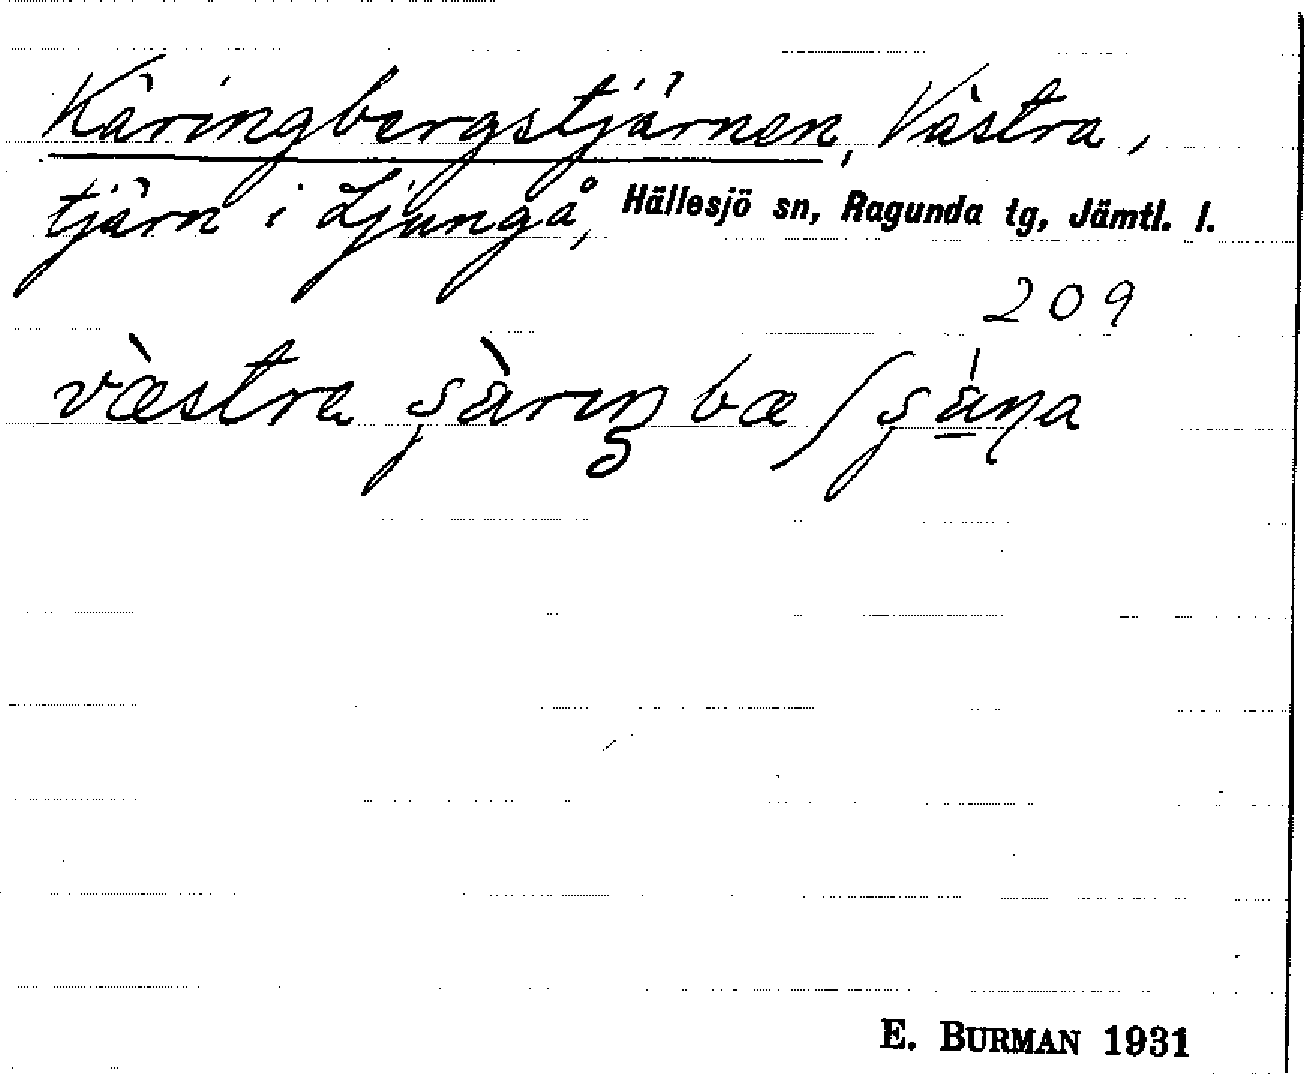 Käringbergstjärnen, Västra,
tjärn i Ljungå, Hällesjö sn, Ragunda tg, Jämtl. l.
209
västra
E. BURMAN 1931